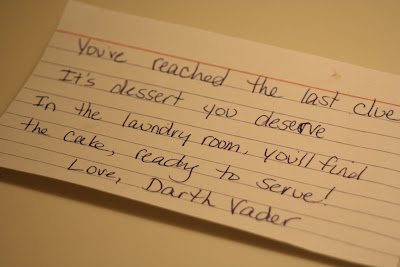 You've reached the last clue
It's dessert you deserve
In the laundry room, you'll find
the cake, ready to serve!
Love, Darth Vader